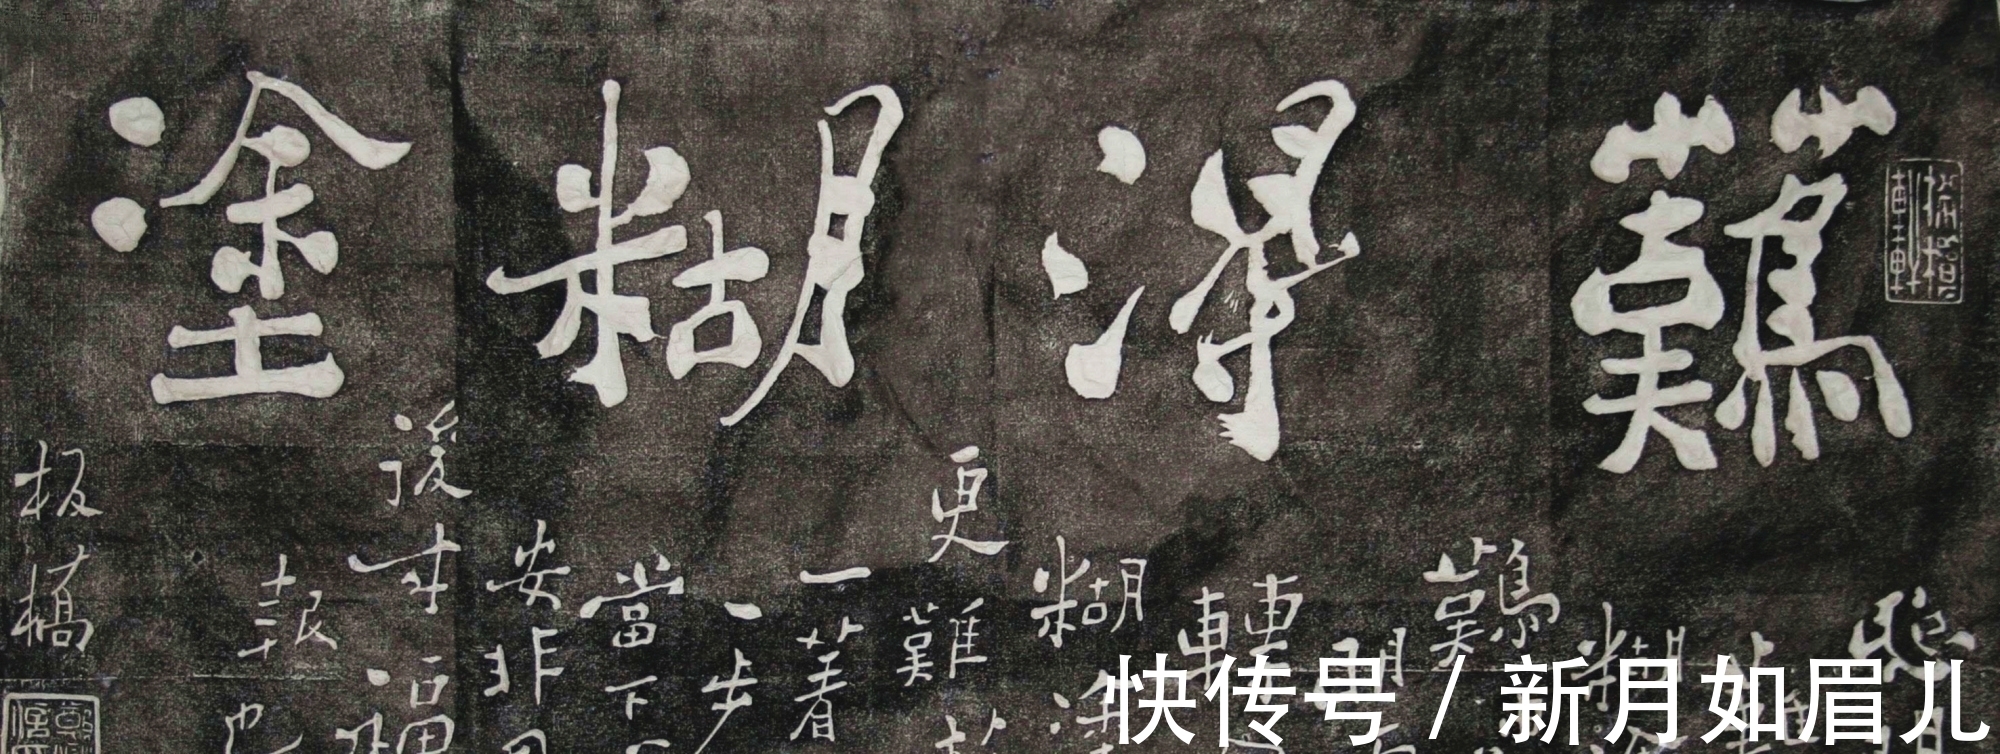 難得糊塗
聰明
難
糊
難
明
轉
糊塗
更難放
一著
一步
當下
安非
後来福
報也
板橋
快传号 / 新月如眉儿